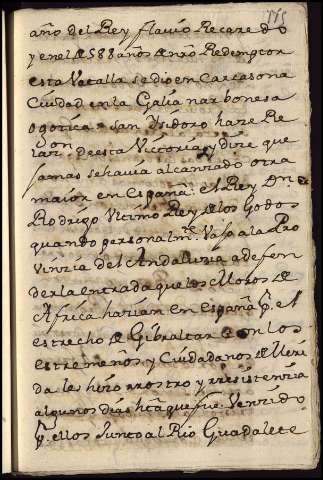 115
año del Rey flauio Recaredo
y en el de 588 años de nro Redemptor
esta Vatalla se dio en Carcasona
Ciudad en la Galia narbonesa
o gotica San Ysidoro haze Re
lazon de esta Victoria y dize que
jamas se hauia alcanzado otra
maior en España: el Rey Dn
Rodrigo Vltimo Rey de los Godos
quando personalmte Vajo a la Pro
vinzia del Andaluzia a defen
der la entrada que los Moros de
Africa harian en España pr el
estrecho de Gibraltar con los
estremeños, y Ciudadanos de Meri
da les hizo rostro y rresistenzia
algunos dias hta que fue Venzido
pr ellos Junto al Rio Guadalete